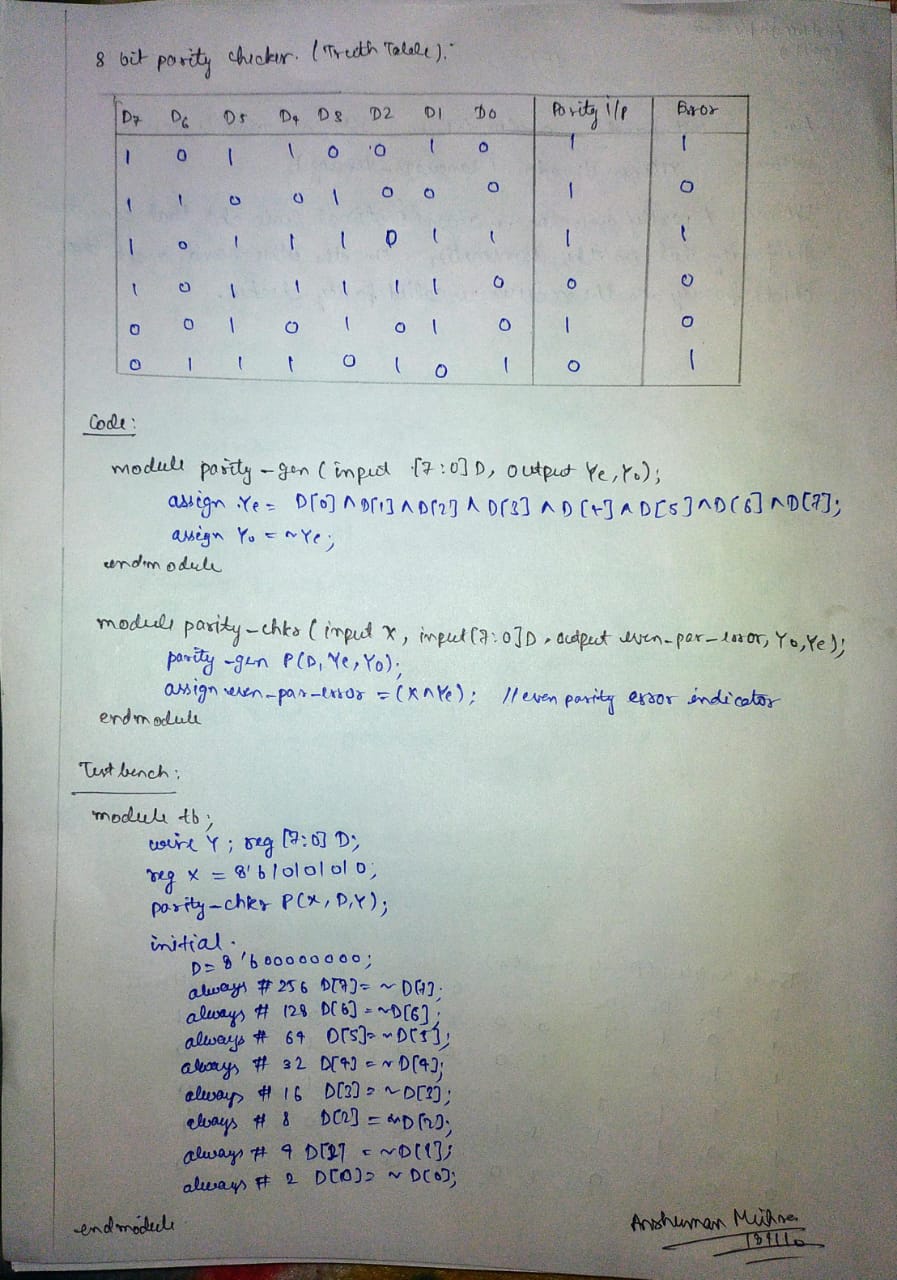 8 bit parity checker. (Truth Table):-
D7 D6 D5 D4 D3 D2 D1 D0 Parity i/p Error
1 0 1 1 0 0 1 0 1 1
1 1 0 0 1 0 0 0 1 0
1 0 1 1 1 0 1 1 1 1
1 0 1 1 1 1 1 0 0 0
0 0 1 0 1 0 1 0 1 0
0 1 1 1 0 1 0 1 0 1
Code:
module parity-gen (input [7:0] D, output Ye, Yo);
assign Ye = D[0] ^ D[1] ^ D[2] ^ D[3] ^ D[4] ^ D[5] ^ D[6] ^ D[7];
assign Yo = ~Ye;
endmodule
module parity-chkr (input X, input [7:0] D, output even-par-error, Yo, Ye);
parity-gen P(D, Ye, Yo);
assign even-par-error = (X ^ Ye); // even parity error indicator
endmodule
Test bench:
module tb;
wire Y; reg [7:0] D;
reg X = 8'b10101010;
parity-chkr P(X, D, Y);
initial
D = 8'b00000000;
always #256 D[7] = ~D[7];
always #128 D[6] = ~D[6];
always #64 D[5] = ~D[5];
always #32 D[4] = ~D[4];
always #16 D[3] = ~D[3];
always #8 D[2] = ~D[2];
always #4 D[1] = ~D[1];
always #2 D[0] = ~D[0];
endmodule
Anshuman Mishra